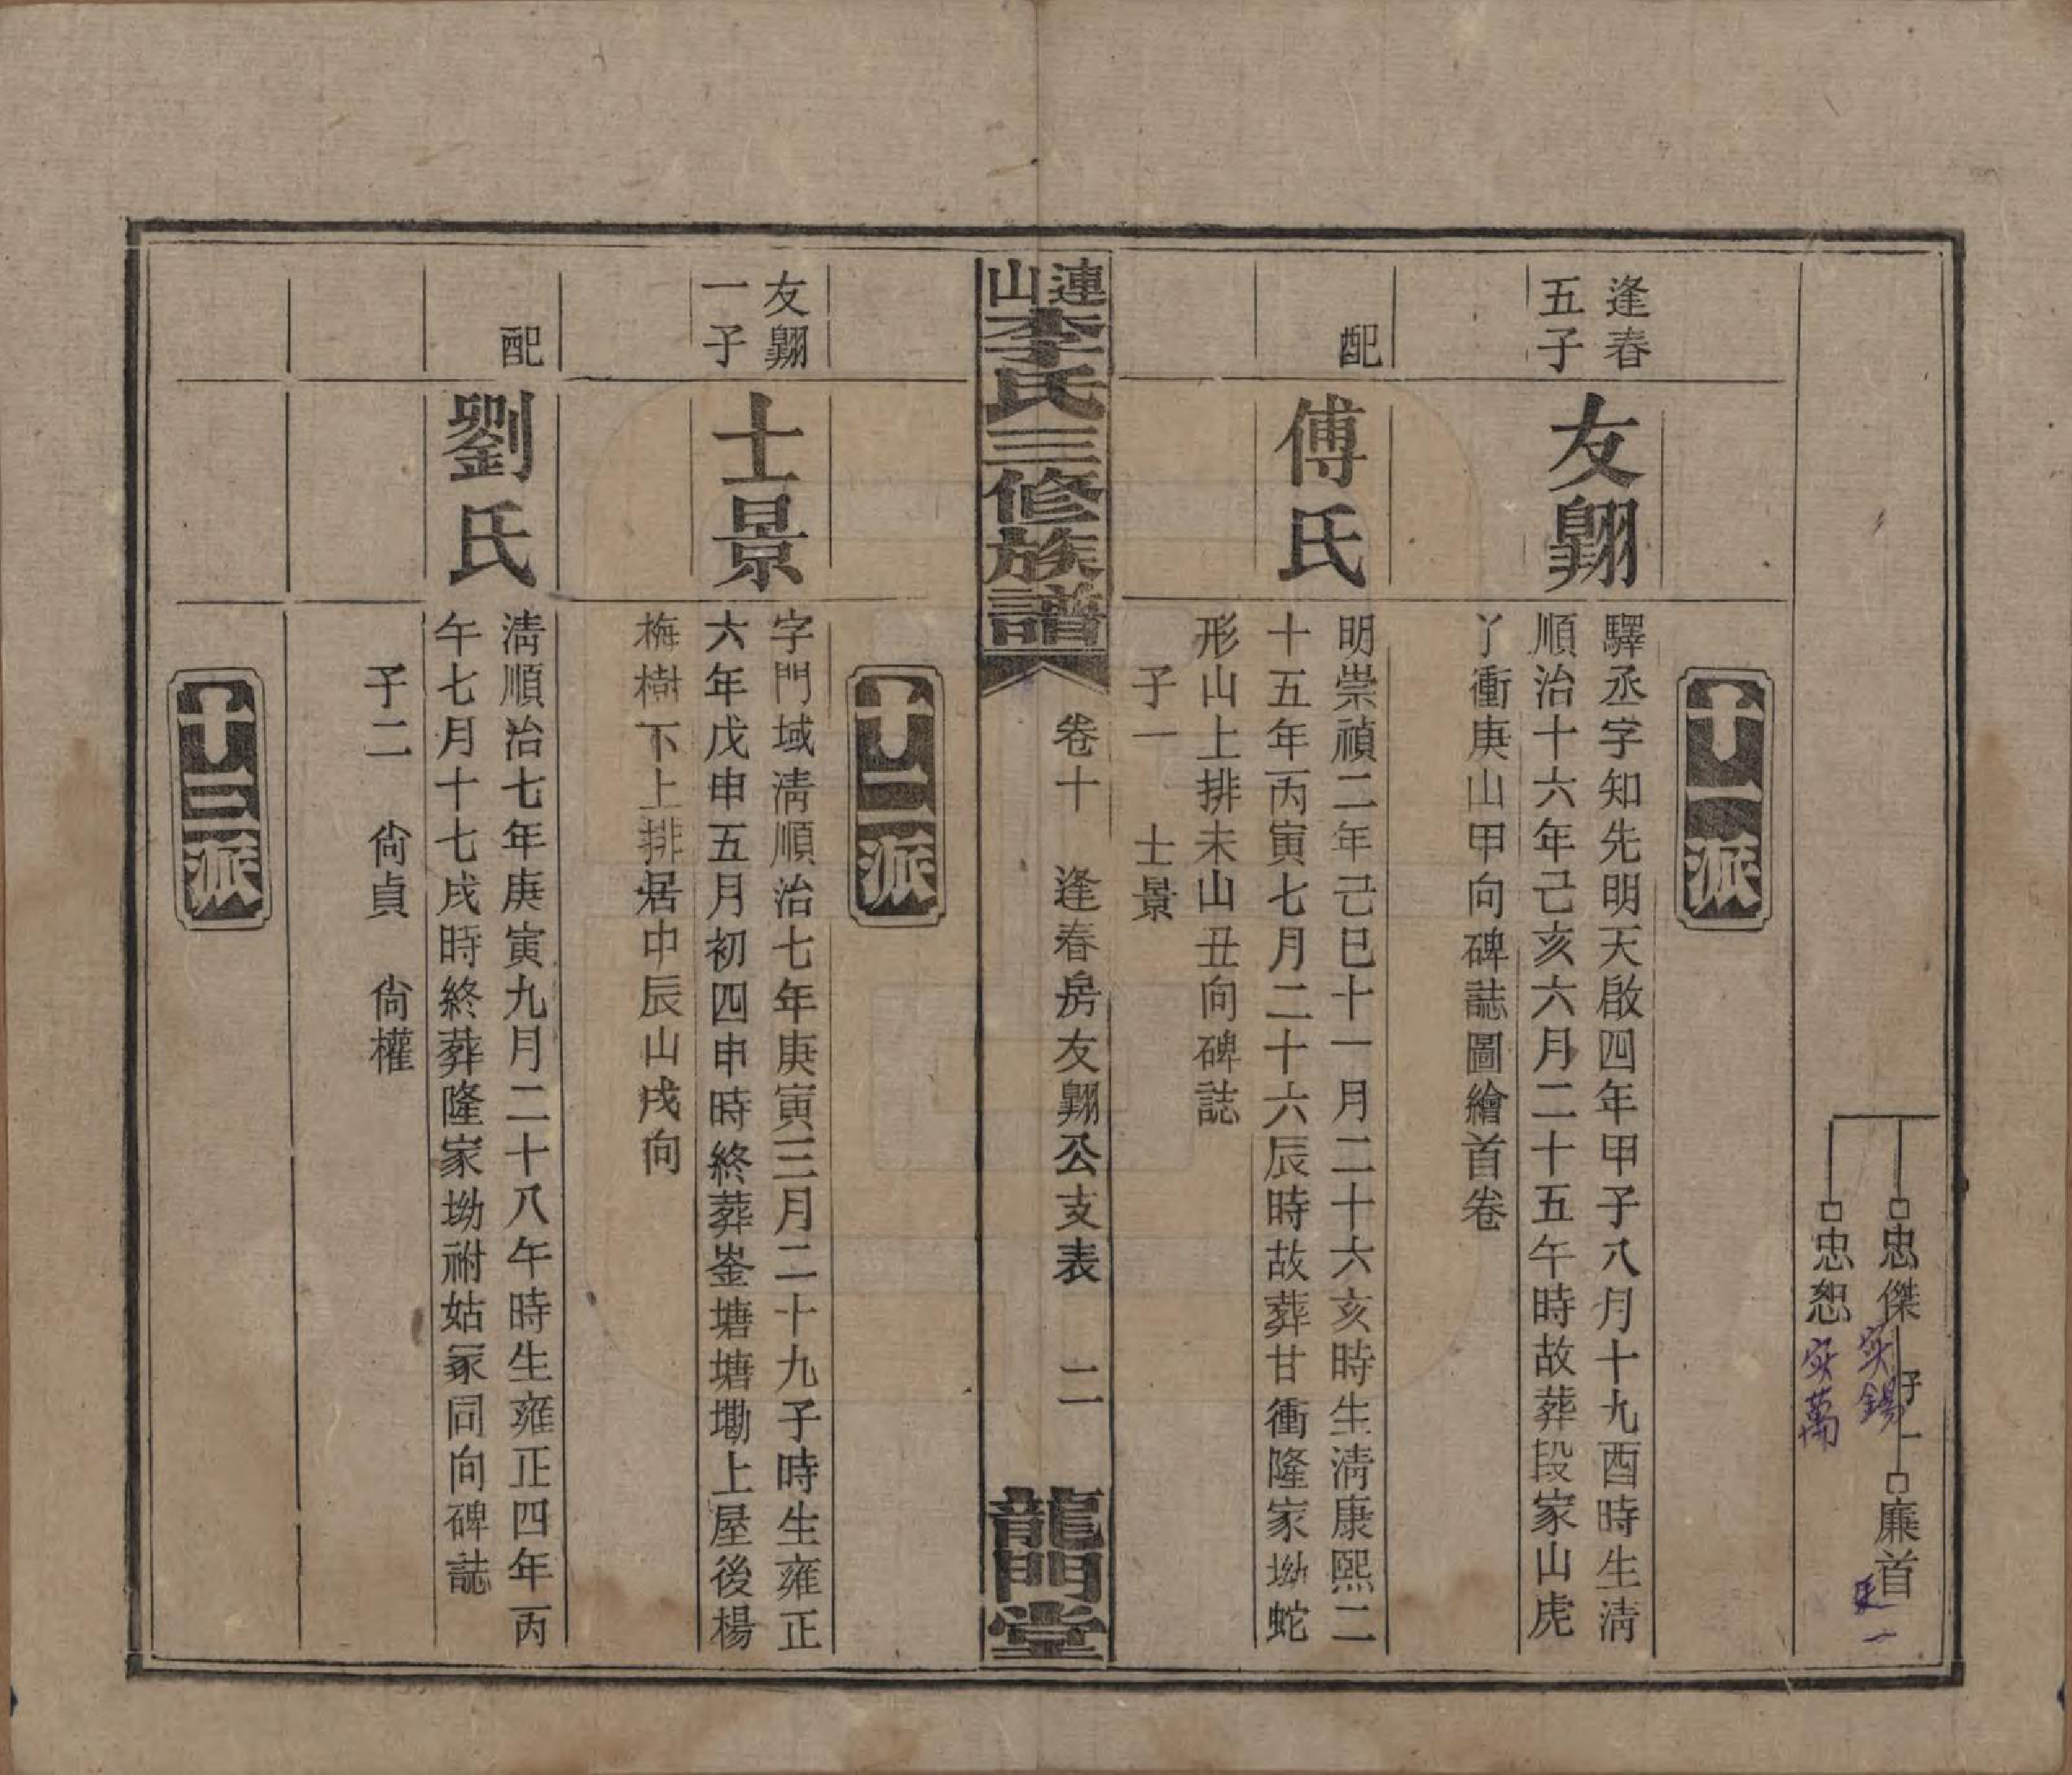 忠傑
子一
廉首
忠恕
实錫
实萬
十一派
逢春
五子
友翺
驛丞字知先明天啟四年甲子八月十九酉時生清
順治十六年己亥六月二十五午時故葬段家山虎
丫衝庚山甲向碑誌圖繪首卷
配
傅氏
明崇禎二年己巳十一月二十六亥時生清康熙二
十五年丙寅七月二十六辰時故葬甘衝隆家坳蛇
形山上排未山丑向碑誌
子一　士景
連山李氏三修族譜
卷十　逢春房友翺公支表　二
龍門堂
十二派
友翺
一子
士景
字門域清順治七年庚寅三月二十九子時生雍正
六年戊申五月初四申時終葬崟塘塘墈上屋後楊
梅樹下上排居中辰山戌向
配
劉氏
清順治七年庚寅九月二十八午時生雍正四年丙
午七月十七戌時終葬隆家坳祔姑冢同向碑誌
子二　尙貞　尙權
十三派